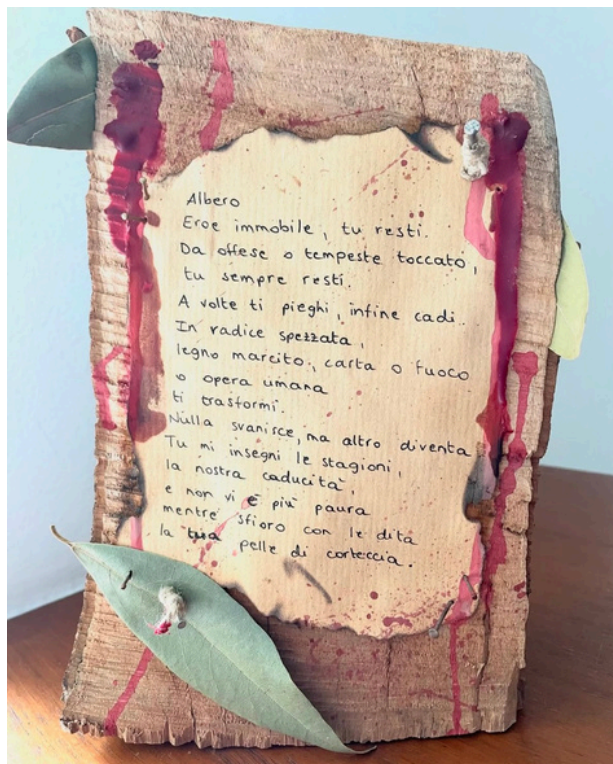 Albero
Eroe immobile, tu resti.
Da offese o tempeste toccato,
tu sempre resti.
A volte ti pieghi, infine cadi..
In radice spezzata,
legno marcito, carta o fuoco
o opera umana
ti trasformi.
Nulla svanisce, ma altro diventa
Tu mi insegni le stagioni,
la nostra caducità,
e non vi è più paura
mentre sfioro con le dita
la tua pelle di corteccia.